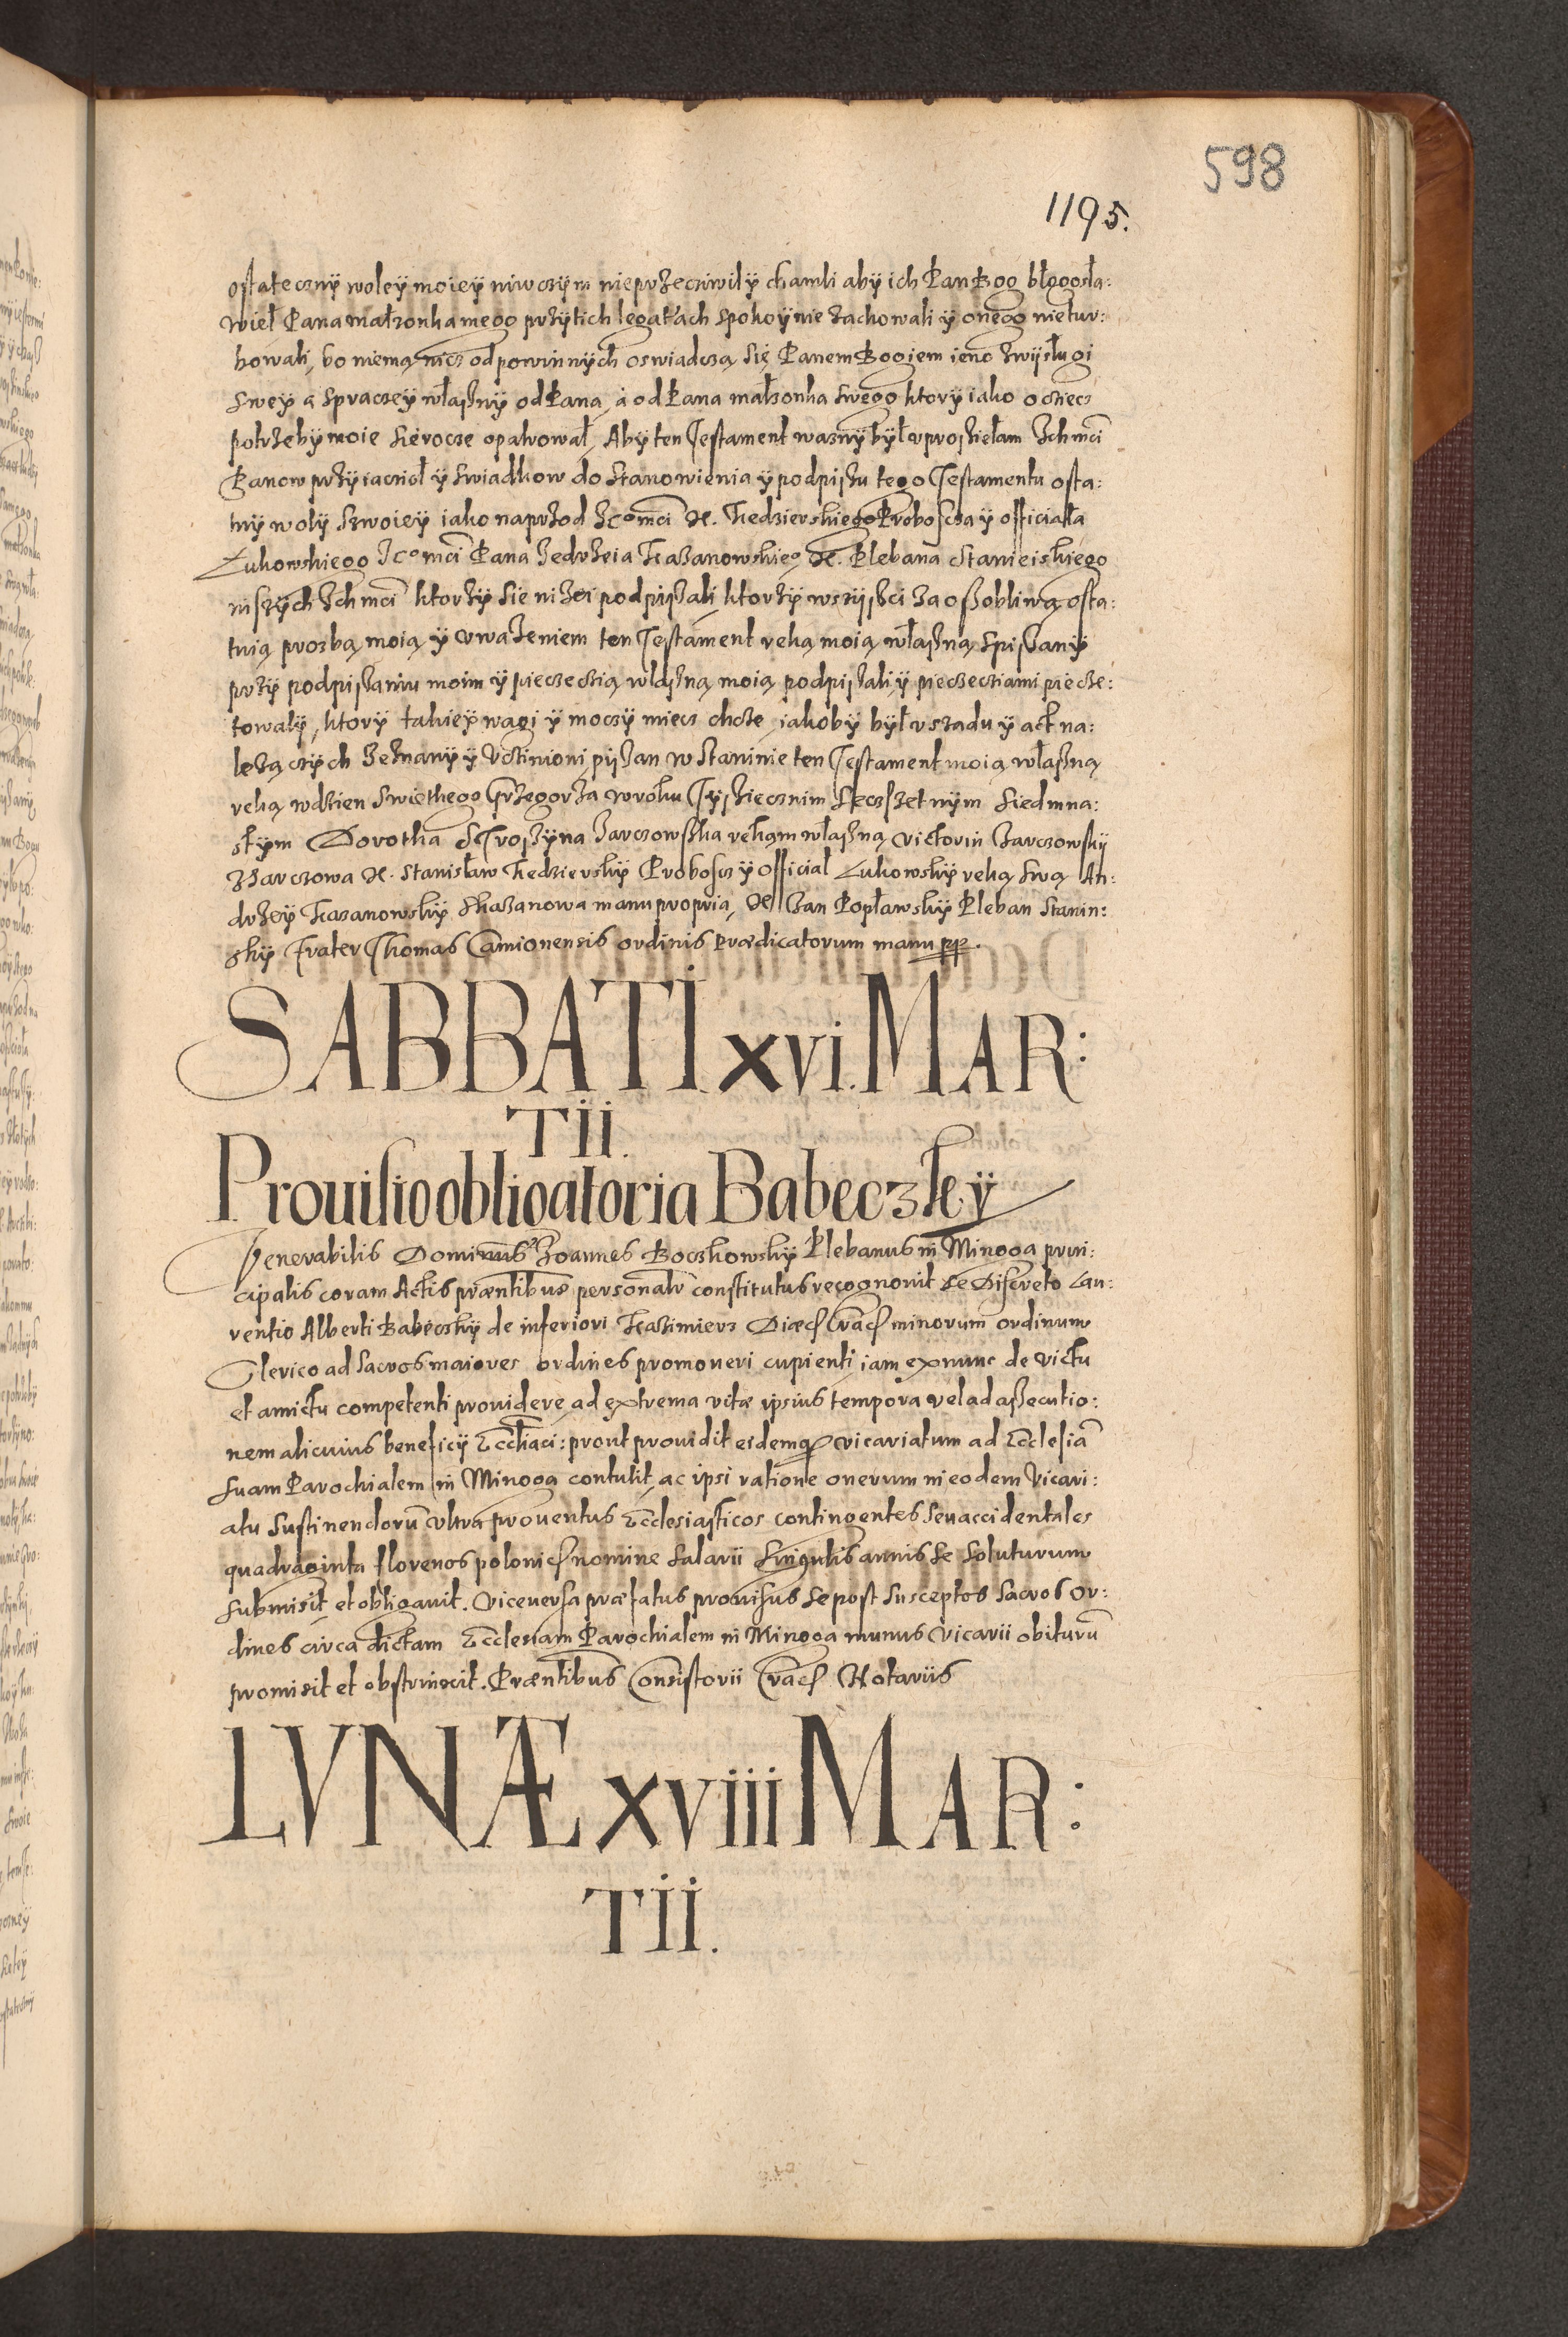 598
1195.
ostateczny woleÿ moieÿ niwczÿm nieprzecziwilÿ chamli abÿ ich Pan Bog błogosła:
wieł Pana małzonka mego przÿ tich legatach spokoÿnie zachowali ÿ onego nietur:
bowali, bo niemą nicz od powinnÿch oswiadczą się Panem Bogiem ieno zwÿsługi
sweÿ a spraczeÿ własznÿ od Pana, a od Pana małzonka swego ktorÿ iako ocziecz
potrzebÿ moie sierocze opatrował, Abÿ ten Testament waznÿ bÿł uprosziełam Ichmci
Panow przÿiacziół ÿ swiadkow do stanowienia ÿ podpiszu tego Testamentu osta:
tnÿ wolÿ szwoieÿ iako naprzod Jcomci X. Kedzierskiego Proboscza ÿ officiała
Łukowskiego Jcomci Pana Jedrzeia Kazanowskieo X. Plebana Stanieiskiego
niszÿch Ichmci ktorzÿ sie nizei podpiszali, ktorzÿ wszÿszci za oszobliwą osta:
tnią prozbą moią ÿ uwazeniem ten Testament reką moią własзną spiszanÿ
przÿ podpiszaniu moim ÿ pieczeczią własзną moią podpiszali ÿ pieczecziami piecze:
towalÿ, ktorÿ takieÿ wagi ÿ moczÿ miecz chcze, iakobÿ bÿł urzadu ÿ act na:
lezączÿch zeznanÿ ÿ uczinioni piszan w Staninie ten Testament moią własзną
reką wdzien Swiethego Grzegorza wroku Tÿsziecznim szeczszetnÿm siedmna:
stÿm Dorotha S Troszÿna Jarczowska reką m własзną Victorin Jarczowskÿ
z Jarczowa X. Stanisław Kedzierskÿ Proboscz ÿ Official Łukowskÿ reką swą An:
drzeÿ Kazanowskÿ z Kazanowa manu propria, X Jan Popławskÿ Pleban Stanin:
skÿ Frater Thomas Camionensis ordinis Prædicatorum manu pp.
SABBATI XVI. MAR:
TII.
Prouisio obligatoria Babeczkeÿ
Venerabilis Dominus Joannes Boczkowskÿ Plebanus in Minoga prin:
cipalis coram Actis præntibus personalr constitutus recognouit se Discreto Lau:
rentio Alberti Babeczkÿ de inferiori Kazimierz Diæc Crac minorum ordinum
Clerico ad sacros maiores ordines promoueri cupienti iam ex nunc de victu
et amictu competenti prouidere ad extrema vitæ ipsius tempora vel ad assecutio:
nem alicuius beneficÿ Eccliaci: prout prouidit eidemq vicariatum ad Ecclesiã
suam Parochialem in Minoga contulit, ac ipsi ratione onerum in eodem Vicari:
atu sustinendorũ ultra prouentus Ecclesiasticos contingentes seu accidentales
quadraginta florenos polonic nomine salarii singulis annis se soluturum
submisit et obligauit. Viceuersa præfatus prouisus se post susceptos sacros or:
dines circa dictam Ecclesiam Parochialem in Minoga munus Vicarii obiturũ
promisit et obstrinxit. Præntibus Consistorii Crac Notariis
LVNÆ XVIII MAR:
TII.